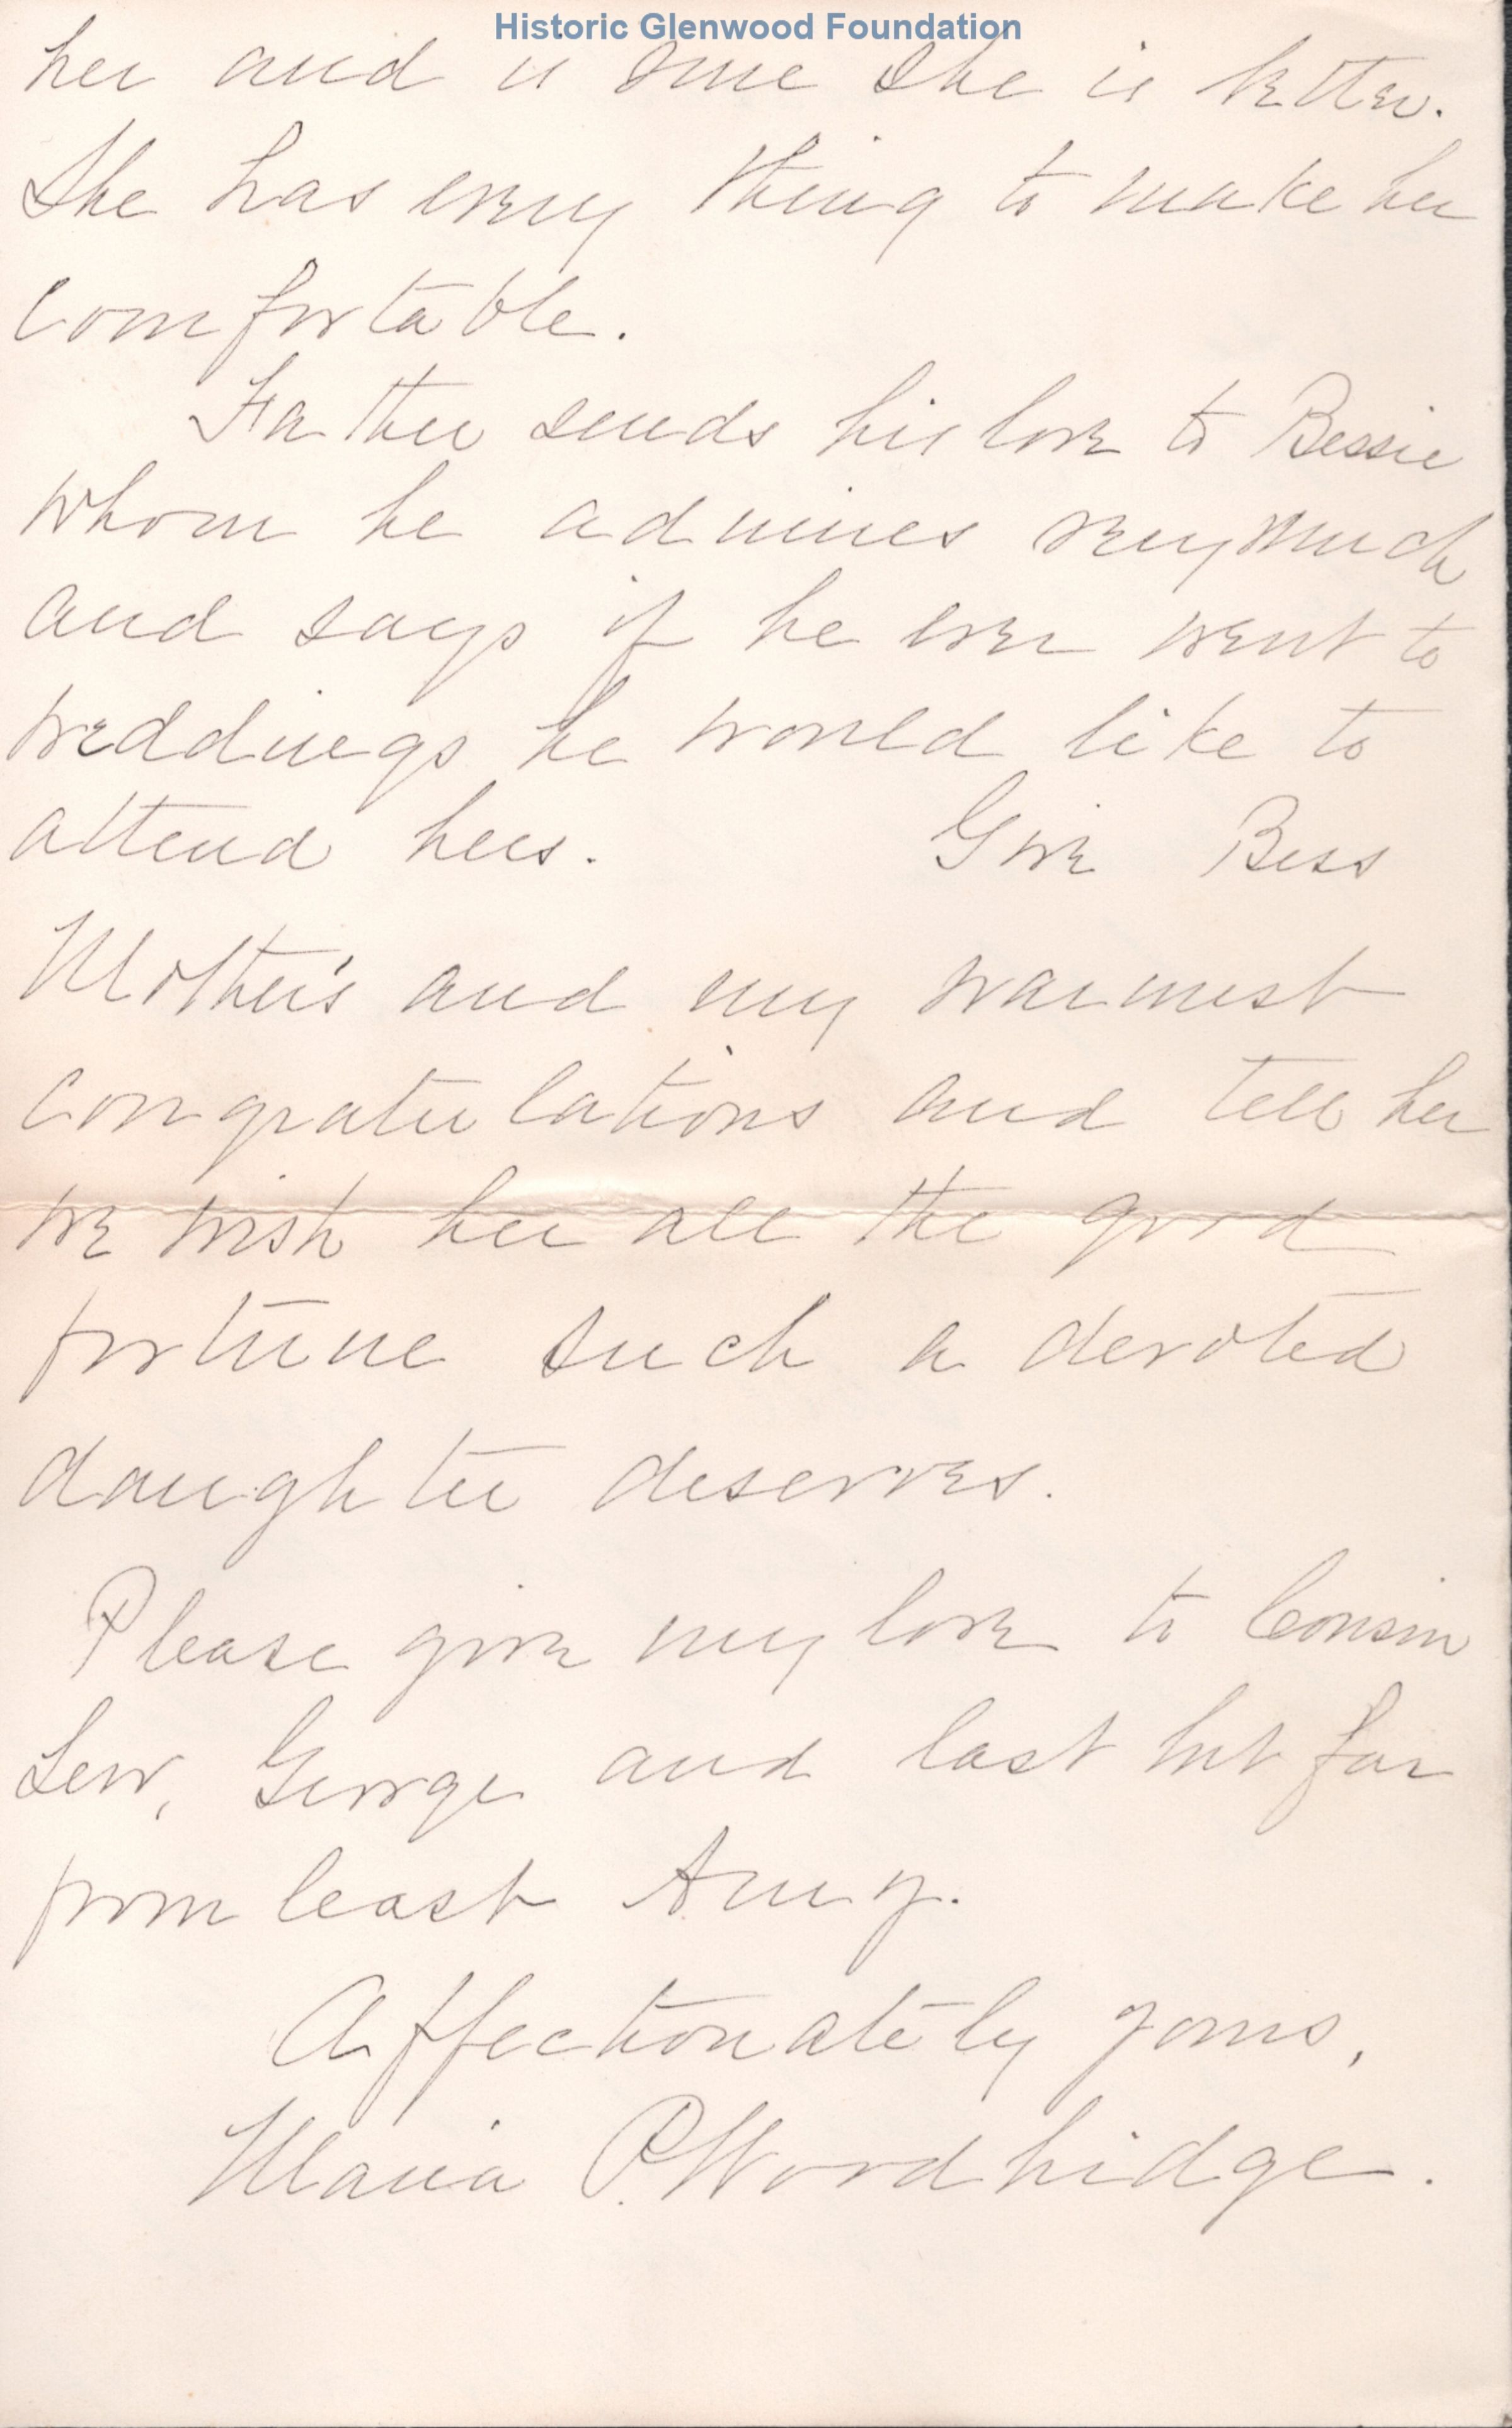 Historic Glenwood Foundation
her and is sure she is better.
She has every thing to make her
comfortable.
Father sends his love to Bessie
whom he admires very much
and says if he ever went to
weddings he would like to
attend hers. Give Bess
Mother's and my warmest
congratulations and tell her
we wish her all the good
fortune such a devoted
daughter deserves.
Please give my love to Cousin
Lew, George and last but far
from least Amy.
Affectionately yours,
Maria P. Woodbridge.